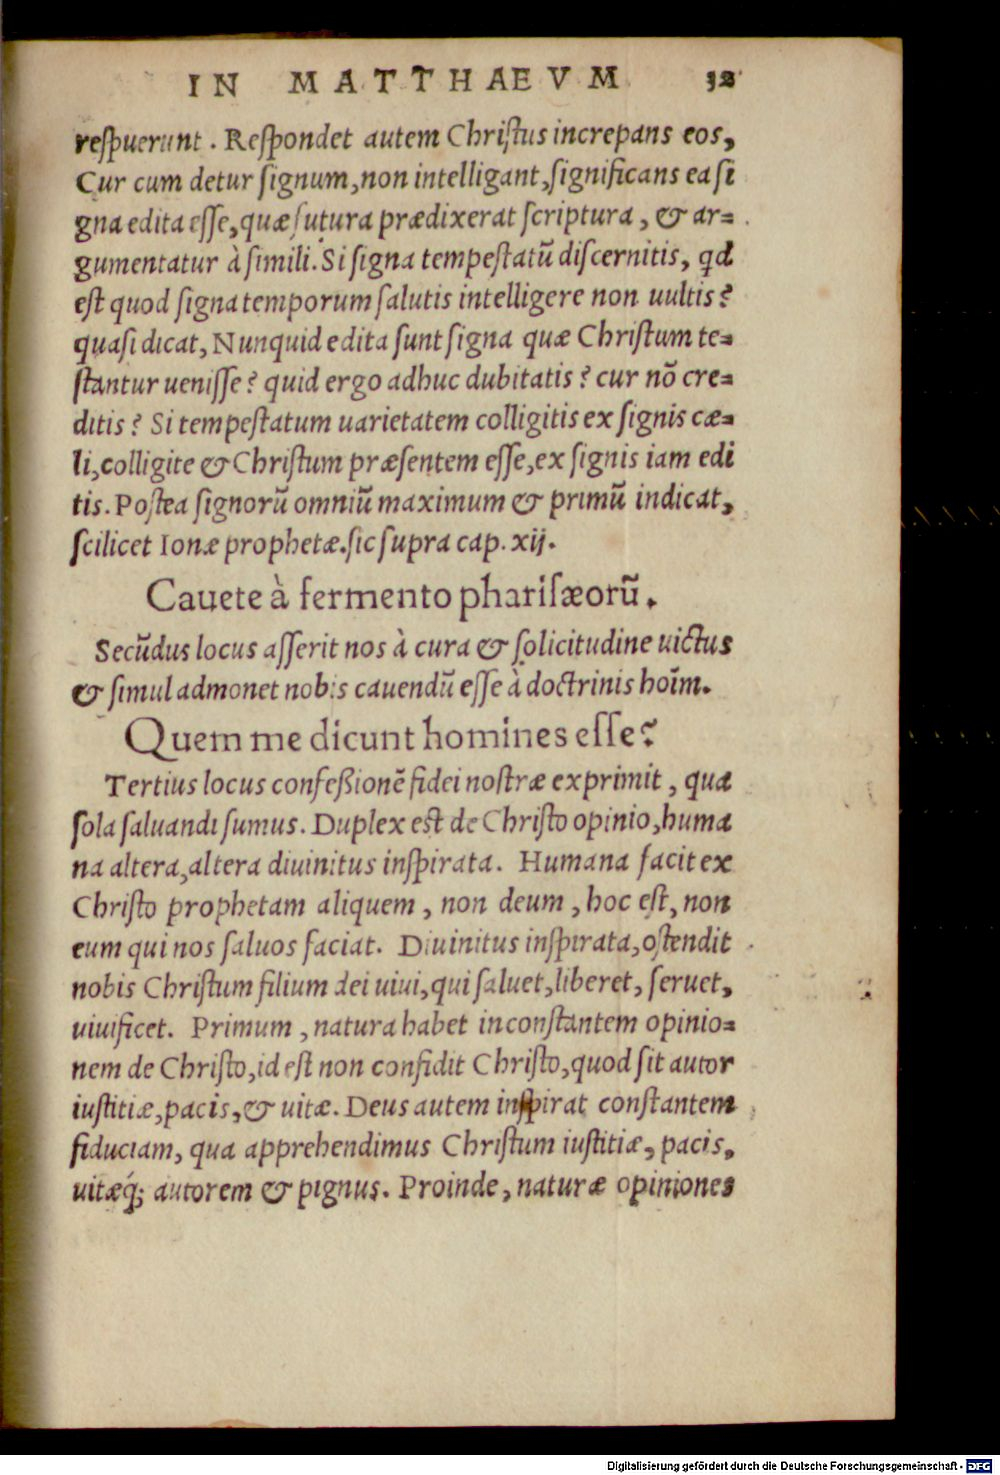 IN MATTHAEVM 32
reſpuerunt. Reſpondet autem Chriſtus increpans eos,
Cur cum detur ſignum, non intelligant, ſignificans ea ſi
gna edita eſſe, quæ futura prædixerat ſcriptura, & ar=
gumentatur à ſimili. Si ſigna tempeſtatũ diſcernitis, qd
eſt quod ſigna temporum ſalutis intelligere non uultis?
quaſi dicat, Nunquid edita ſunt ſigna quæ Chriſtum te=
ſtantur ueniſſe? quid ergo adhuc dubitatis? cur nõ cre=
ditis? Si tempeſtatum uarietatem colligitis ex ſignis cæ=
li, colligite & Chriſtum præſentem eſſe, ex ſignis iam edi
tis. Poſtea ſignorũ omniũ maximum & primũ indicat,
ſcilicet Ionæ prophetæ. ſic ſupra cap. xij.
Cauete à fermento phariſæorũ.
Secũdus locus aſſerit nos à cura & ſolicitudine uictus
& ſimul admonet nobis cauendũ eſſe à doctrinis hoĩm.
Quem me dicunt homines eſſe?
Tertius locus confeßionẽ fidei noſtræ exprimit, qua
ſola ſaluandi ſumus. Duplex eſt de Chriſto opinio, huma
na altera, altera diuinitus inſpirata. Humana facit ex
Chriſto prophetam aliquem, non deum, hoc eſt, non
eum qui nos ſaluos faciat. Diuinitus inſpirata, oſtendit
nobis Chriſtum filium dei uiui, qui ſaluet, liberet, ſeruet,
uiuificet. Primum, natura habet inconſtantem opinio=
nem de Chriſto, id eſt non confidit Chriſto, quod ſit autor
iuſtitiæ, pacis, & uitæ. Deus autem inſpirat conſtantem
fiduciam, qua apprehendimus Chriſtum iuſtitiæ, pacis,
uitæq́; autorem & pignus. Proinde, naturæ opiniones
Digitalisierung gefördert durch die Deutsche Forschungsgemeinschaft - DFG